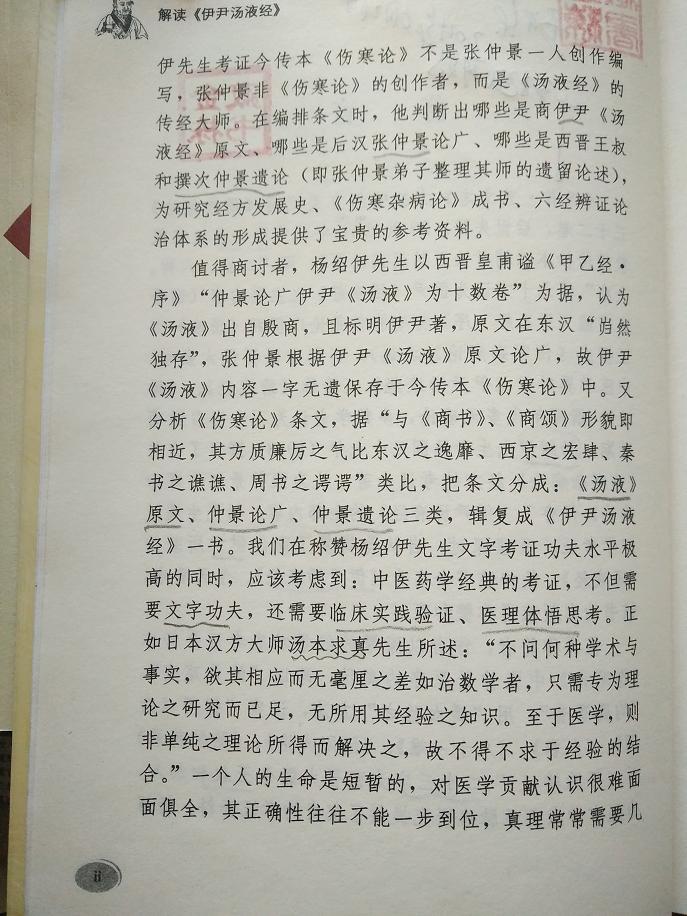 解读《伊尹汤液经》
伊先生考证今传本《伤寒论》不是张仲景一人创作编
写，张仲景非《伤寒论》的创作者，而是《汤液经》的
传经大师。在编排条文时，他判断出哪些是商伊尹《汤
液经》原文、哪些是后汉张仲景论广、哪些是西晋王叔
和撰次仲景遗论（即张仲景弟子整理其师的遗留论述），
为研究经方发展史、《伤寒杂病论》成书、六经辨证论
治体系的形成提供了宝贵的参考资料。
值得商讨者，杨绍伊先生以西晋皇甫谧《甲乙经·
序》“仲景论广伊尹《汤液》为十数卷”为据，认为
《汤液》出自殷商，且标明伊尹著，原文在东汉“岿然
独存”，张仲景根据伊尹《汤液》原文论广，故伊尹
《汤液》内容一字无遗保存于今传本《伤寒论》中。又
分析《伤寒论》条文，据“与《商书》、《商颂》形貌即
相近，其方质廉厉之气比东汉之逸靡、西京之宏肆、秦
书之谯谯、周书之谔谔”类比，把条文分成：《汤液》
原文、仲景论广、仲景遗论三类，辑复成《伊尹汤液
经》一书。我们在称赞杨绍伊先生文字考证功夫水平极
高的同时，应该考虑到：中医药学经典的考证，不但需
要文字功夫，还需要临床实践验证、医理体悟思考。正
如日本汉方大师汤本求真先生所述：“不问何种学术与
事实，欲其相应而无毫厘之差如治数学者，只需专为理
论之研究而已足，无所用其经验之知识。至于医学，则
非单纯之理论所得而解决之，故不得不求于经验的结
合。”一个人的生命是短暂的，对医学贡献认识很难面
面俱全，其正确性往往不能一步到位，真理常常需要几
ii